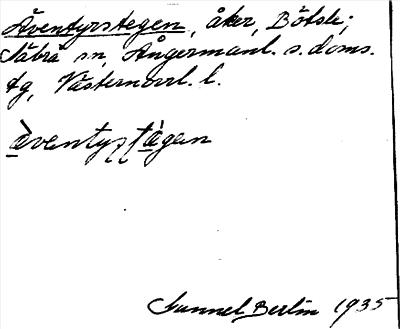 Äventyrstegen, åker, Bölsle;
Säbrå sn, Ångermanl. s. doms.
tg, Västernorrl. l.
äventyṣṭägen
Gunnel Berlin 1935